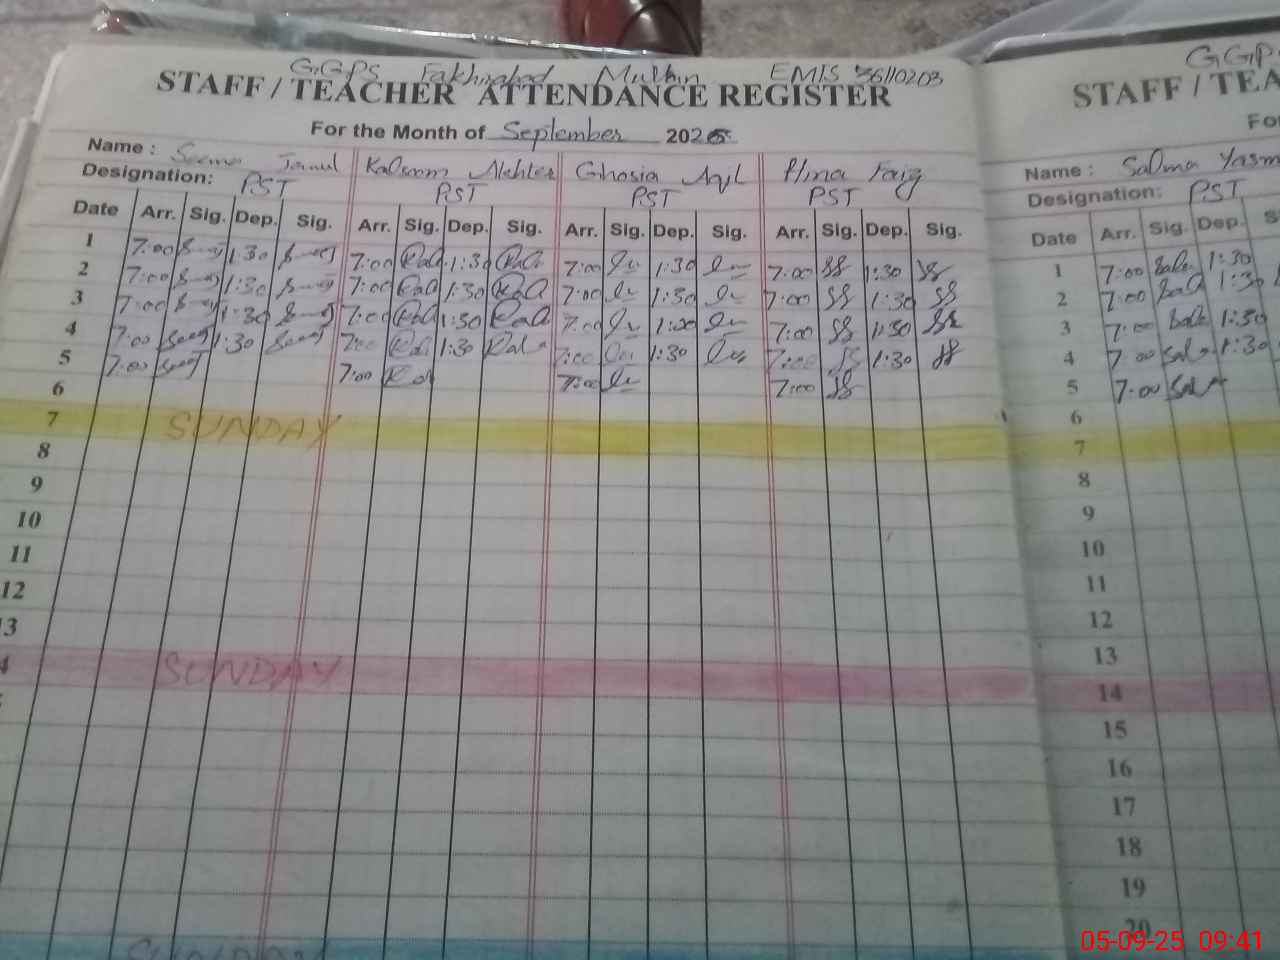 GGPS Fakhirabad Multan EMIS 36110203
STAFF / TEACHER ATTENDANCE REGISTER
For the Month of September 2025
Name : Seema Jamil Kalsoom Akhter Ghosia Aqil Hina Faiz
Designation: PST PST PST PST
Date Arr. Sig. Dep. Sig. Arr. Sig. Dep. Sig. Arr. Sig. Dep. Sig. Arr. Sig. Dep. Sig.
1 7:00 1:30 7:00 1:30 7:00 1:30 7:00 1:30
2 7:00 1:30 7:00 1:30 7:00 1:30 7:00 1:30
3 7:00 1:30 7:00 1:30 7:00 1:00 7:00 1:30
4 7:00 1:30 7:00 1:30 7:00 1:30 7:00 1:30
5 7:00 7:00 7:00 7:00
6
7 SUNDAY
8
9
10
11
12
13
4 SUNDAY
SUNDAY
GGPS
STAFF / TEA
For
Name : Salma Yasm
Designation: PST
Date Arr. Sig. Dep. S
1 7:00 1:30
2 7:00 1:30
3 7:00 1:30
4 7:00 1:30
5 7:00
6
7
8
9
10
11
12
13
14
15
16
17
18
19
20
05-09-25 09:41